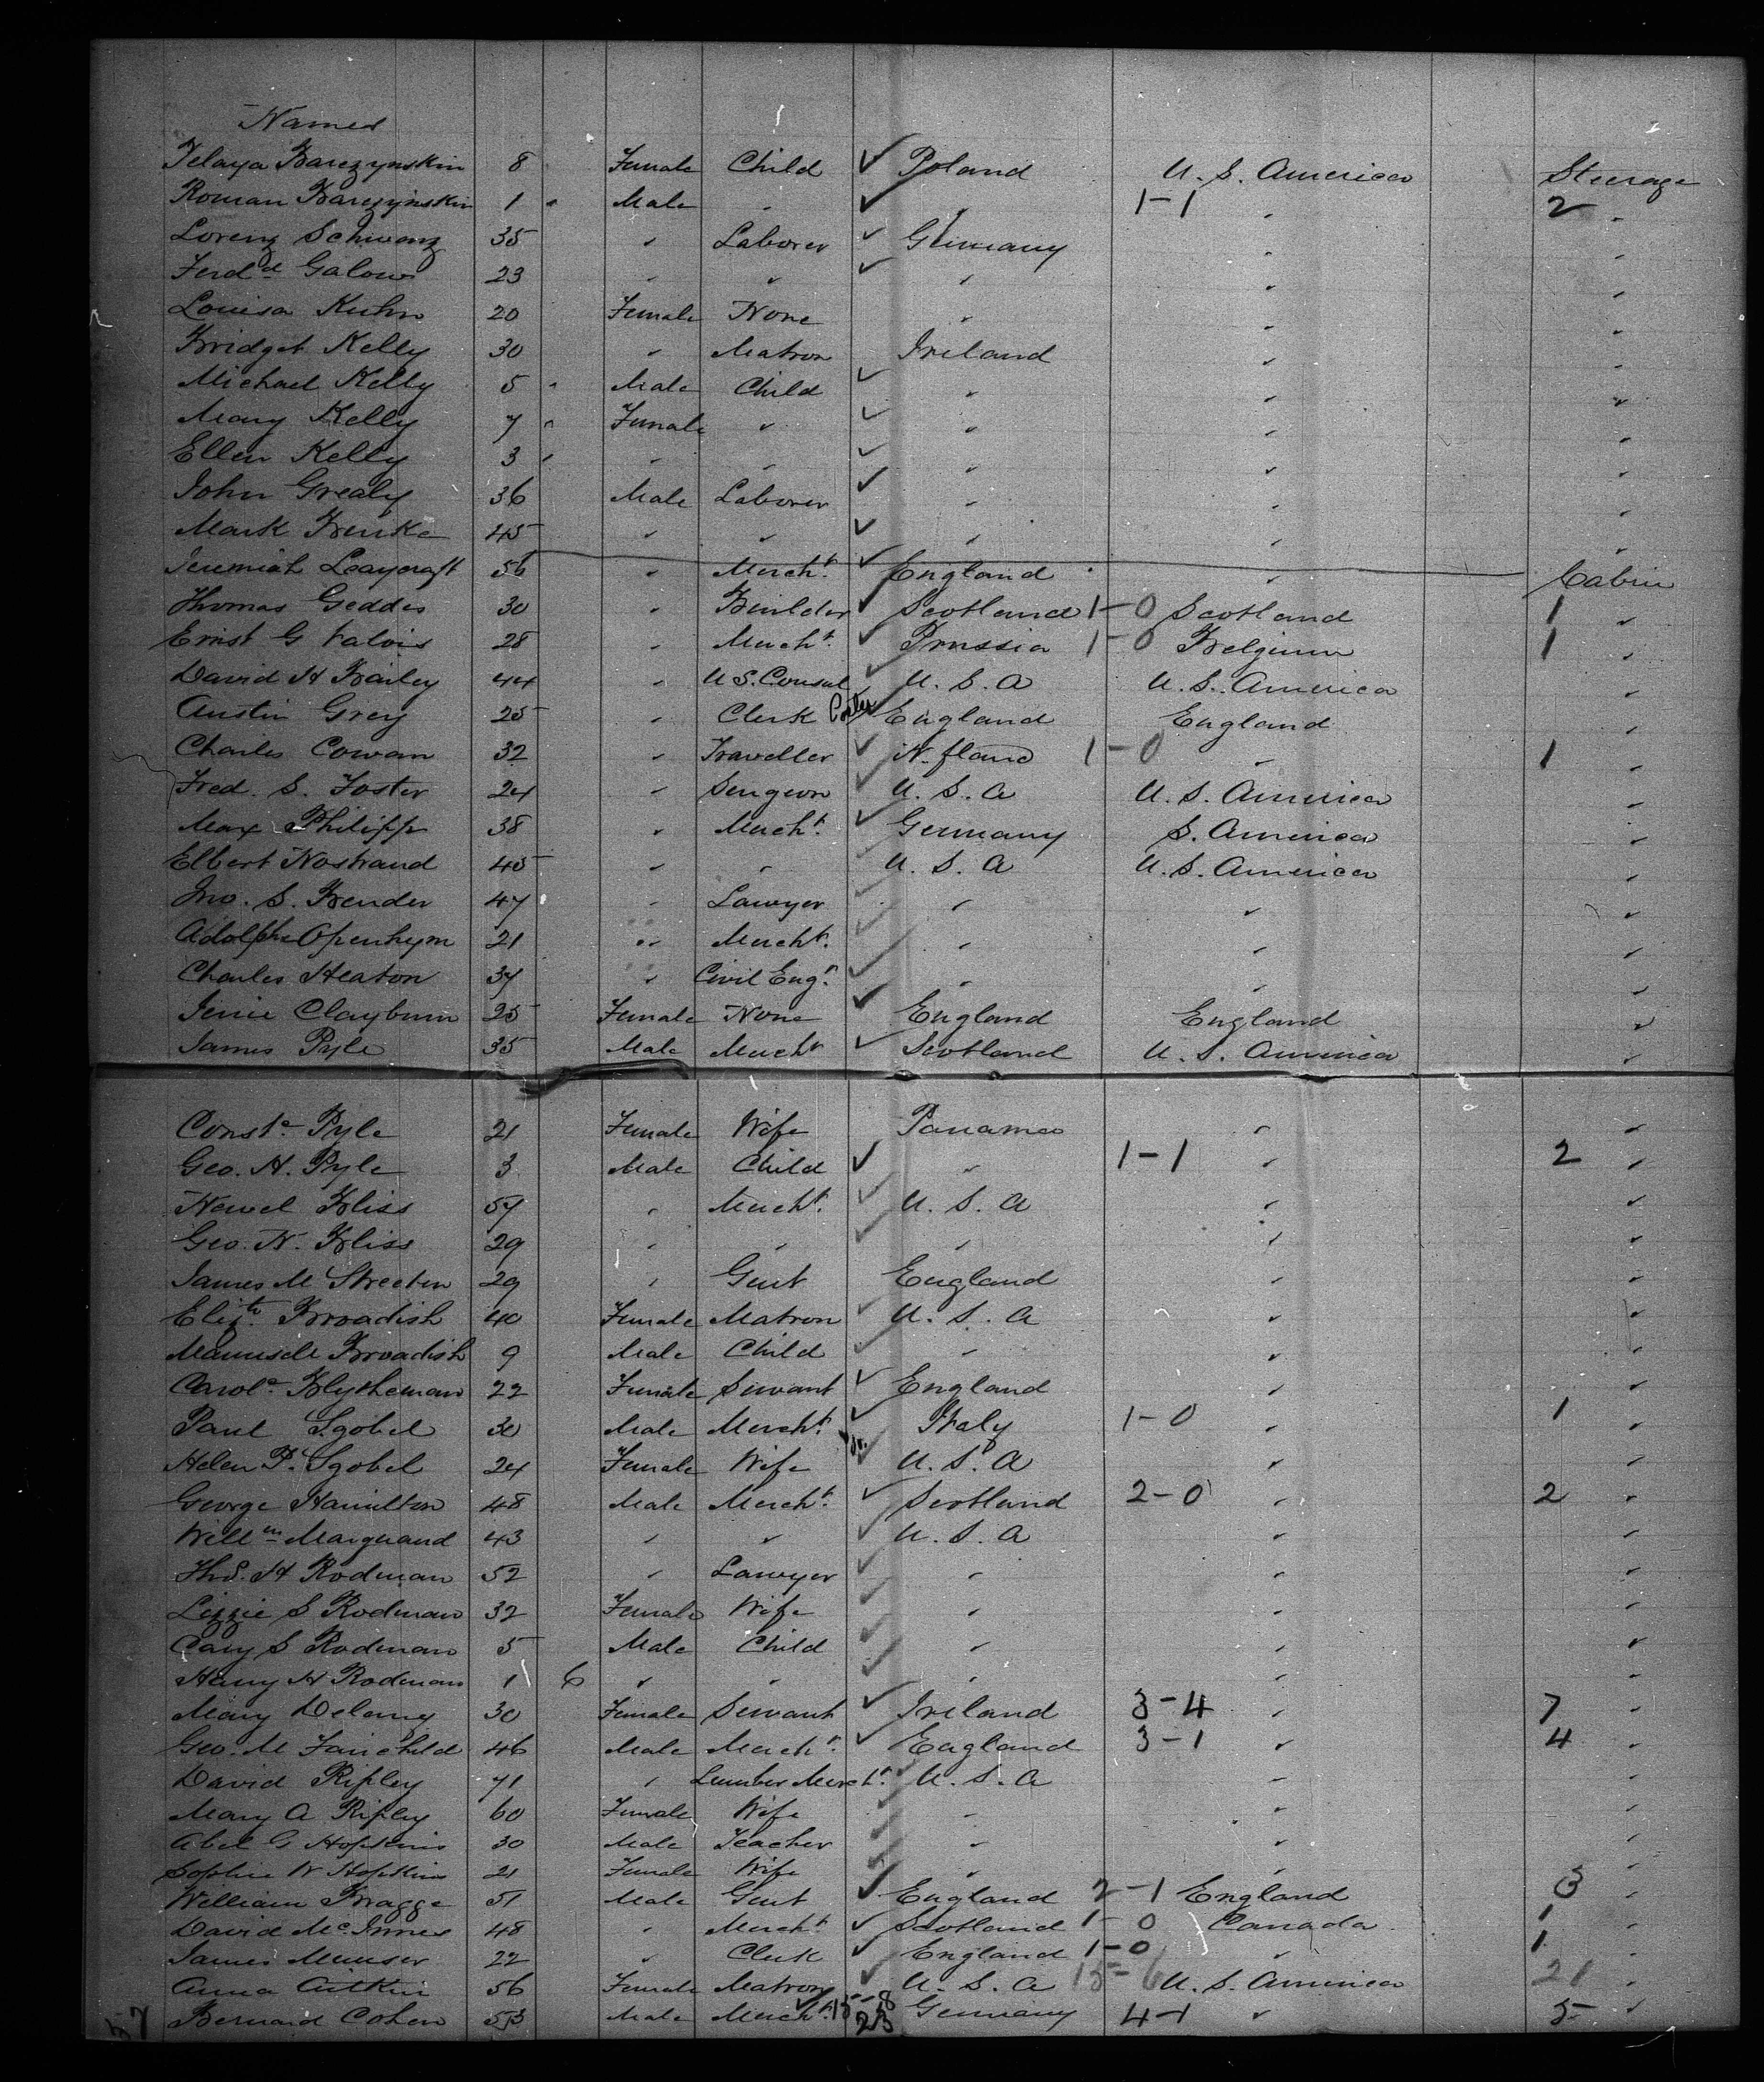 Names
Barczynskin 8 Female Child ✓ Poland U. S. America Steerage
Roman Barczynskin 1 " Male " ✓ " 1-1 " 2 "
Lorenz Schwarz 35 " Laborer ✓ Germany " "
Ferd^d Galow 23 " " ✓ " " "
Louisa Kuhn 20 Female None " " "
Bridget Kelly 30 " Matron Ireland " "
Michael Kelly 5 " Male Child ✓ " " "
Mary Kelly 7 " Female " ✓ " " "
Ellen Kelly 3 " " " ✓ " " "
John Grealy 36 Male Laborer ✓ " " "
Mark 45 " " ✓ " " "
Jeremiah Leaycraft 56 " Mercht. ✓ England " Cabin
Thomas Geddes 30 " Builder ✓ Scotland 1-0 Scotland 1 "
Ernst G 28 " Mercht. ✓ Prussia 1-0 Belgium 1 "
David H Bailey 44 " U S. Consul ✓ U. S. A U. S. America "
Austin Grey 25 " Clerk ✓ England England "
Charles Cowan 32 " Traveller ✓ N. fland 1-0 " 1 "
Fred. S. Foster 24 " Surgeon ✓ U. S. A U. S. America "
Max Philipp 38 " Mercht. ✓ Germany S. America "
Elbert Nostrand 45 " " ✓ U. S. A U. S. America "
Jno. S. Bender 47 " Lawyer ✓ " " "
Adolphe Openhym 21 " Mercht. ✓ " " "
Charles Heaton 37 " Civil Engr. ✓ " " "
Jenie Clayburn 25 Female None ✓ England England "
James Pyle 35 Male Mercht ✓ Scotland U. S. America "
Conste. Pyle 21 Female Wife Panama " "
Geo. H. Pyle 3 Male Child ✓ " 1-1 " 2 "
Newel Bliss 57 " Mercht. ✓ U. S. A " "
Geo. N. Bliss 29 " " ✓ " " "
James M Streeten 29 " Gent England " "
Elizth. Broadish 40 Female Matron ✓ U. S. A " "
Broadish 9 Male Child ✓ " " "
Carole. Blytheman 22 Female Servant ✓ England " "
Paul Sgobel 30 Male Mercht. ✓ Italy 1-0 " 1 "
Helen P. Sgobel 24 Female Wife ✓ U. S. A " "
George Hamilton 48 Male Mercht. ✓ Scotland 2-0 " 2 "
Willm Marquand 43 " " ✓ U. S. A " "
Thos. H Rodman 52 " Lawyer ✓ " " "
Lizzie S Rodman 32 Female Wife ✓ " " "
Cary S Rodman 5 Male Child ✓ " " "
Henry H Rodman 1 6 " " ✓ " " "
Mary Delany 30 Female Servant ✓ Ireland 3-4 " 7 "
Geo. M Fairchild 46 Male Mercht. ✓ England 3-1 " 4 "
David Ripley 71 " Lumber Mercht. ✓ U. S. A " "
Mary A Ripley 60 Female Wife ✓ " " "
Abel G Hopkins 30 Male Teacher ✓ " " "
Sophie W Hopkins 21 Female Wife ✓ " " "
William Bragge 51 Male Gent ✓ England 2-1 England 3 "
David McInnes 48 " Mercht ✓ Scotland 1-0 Canada 1 "
James 22 " Clerk ✓ England 1-0 " 1 "
Anna Aitkin 56 Female Matron ✓ U. S. A 15-6 U. S. America 21 "
Bernard Cohen 53 Male Mercht. 15-8 23 Germany 4-1 " 5 "
57